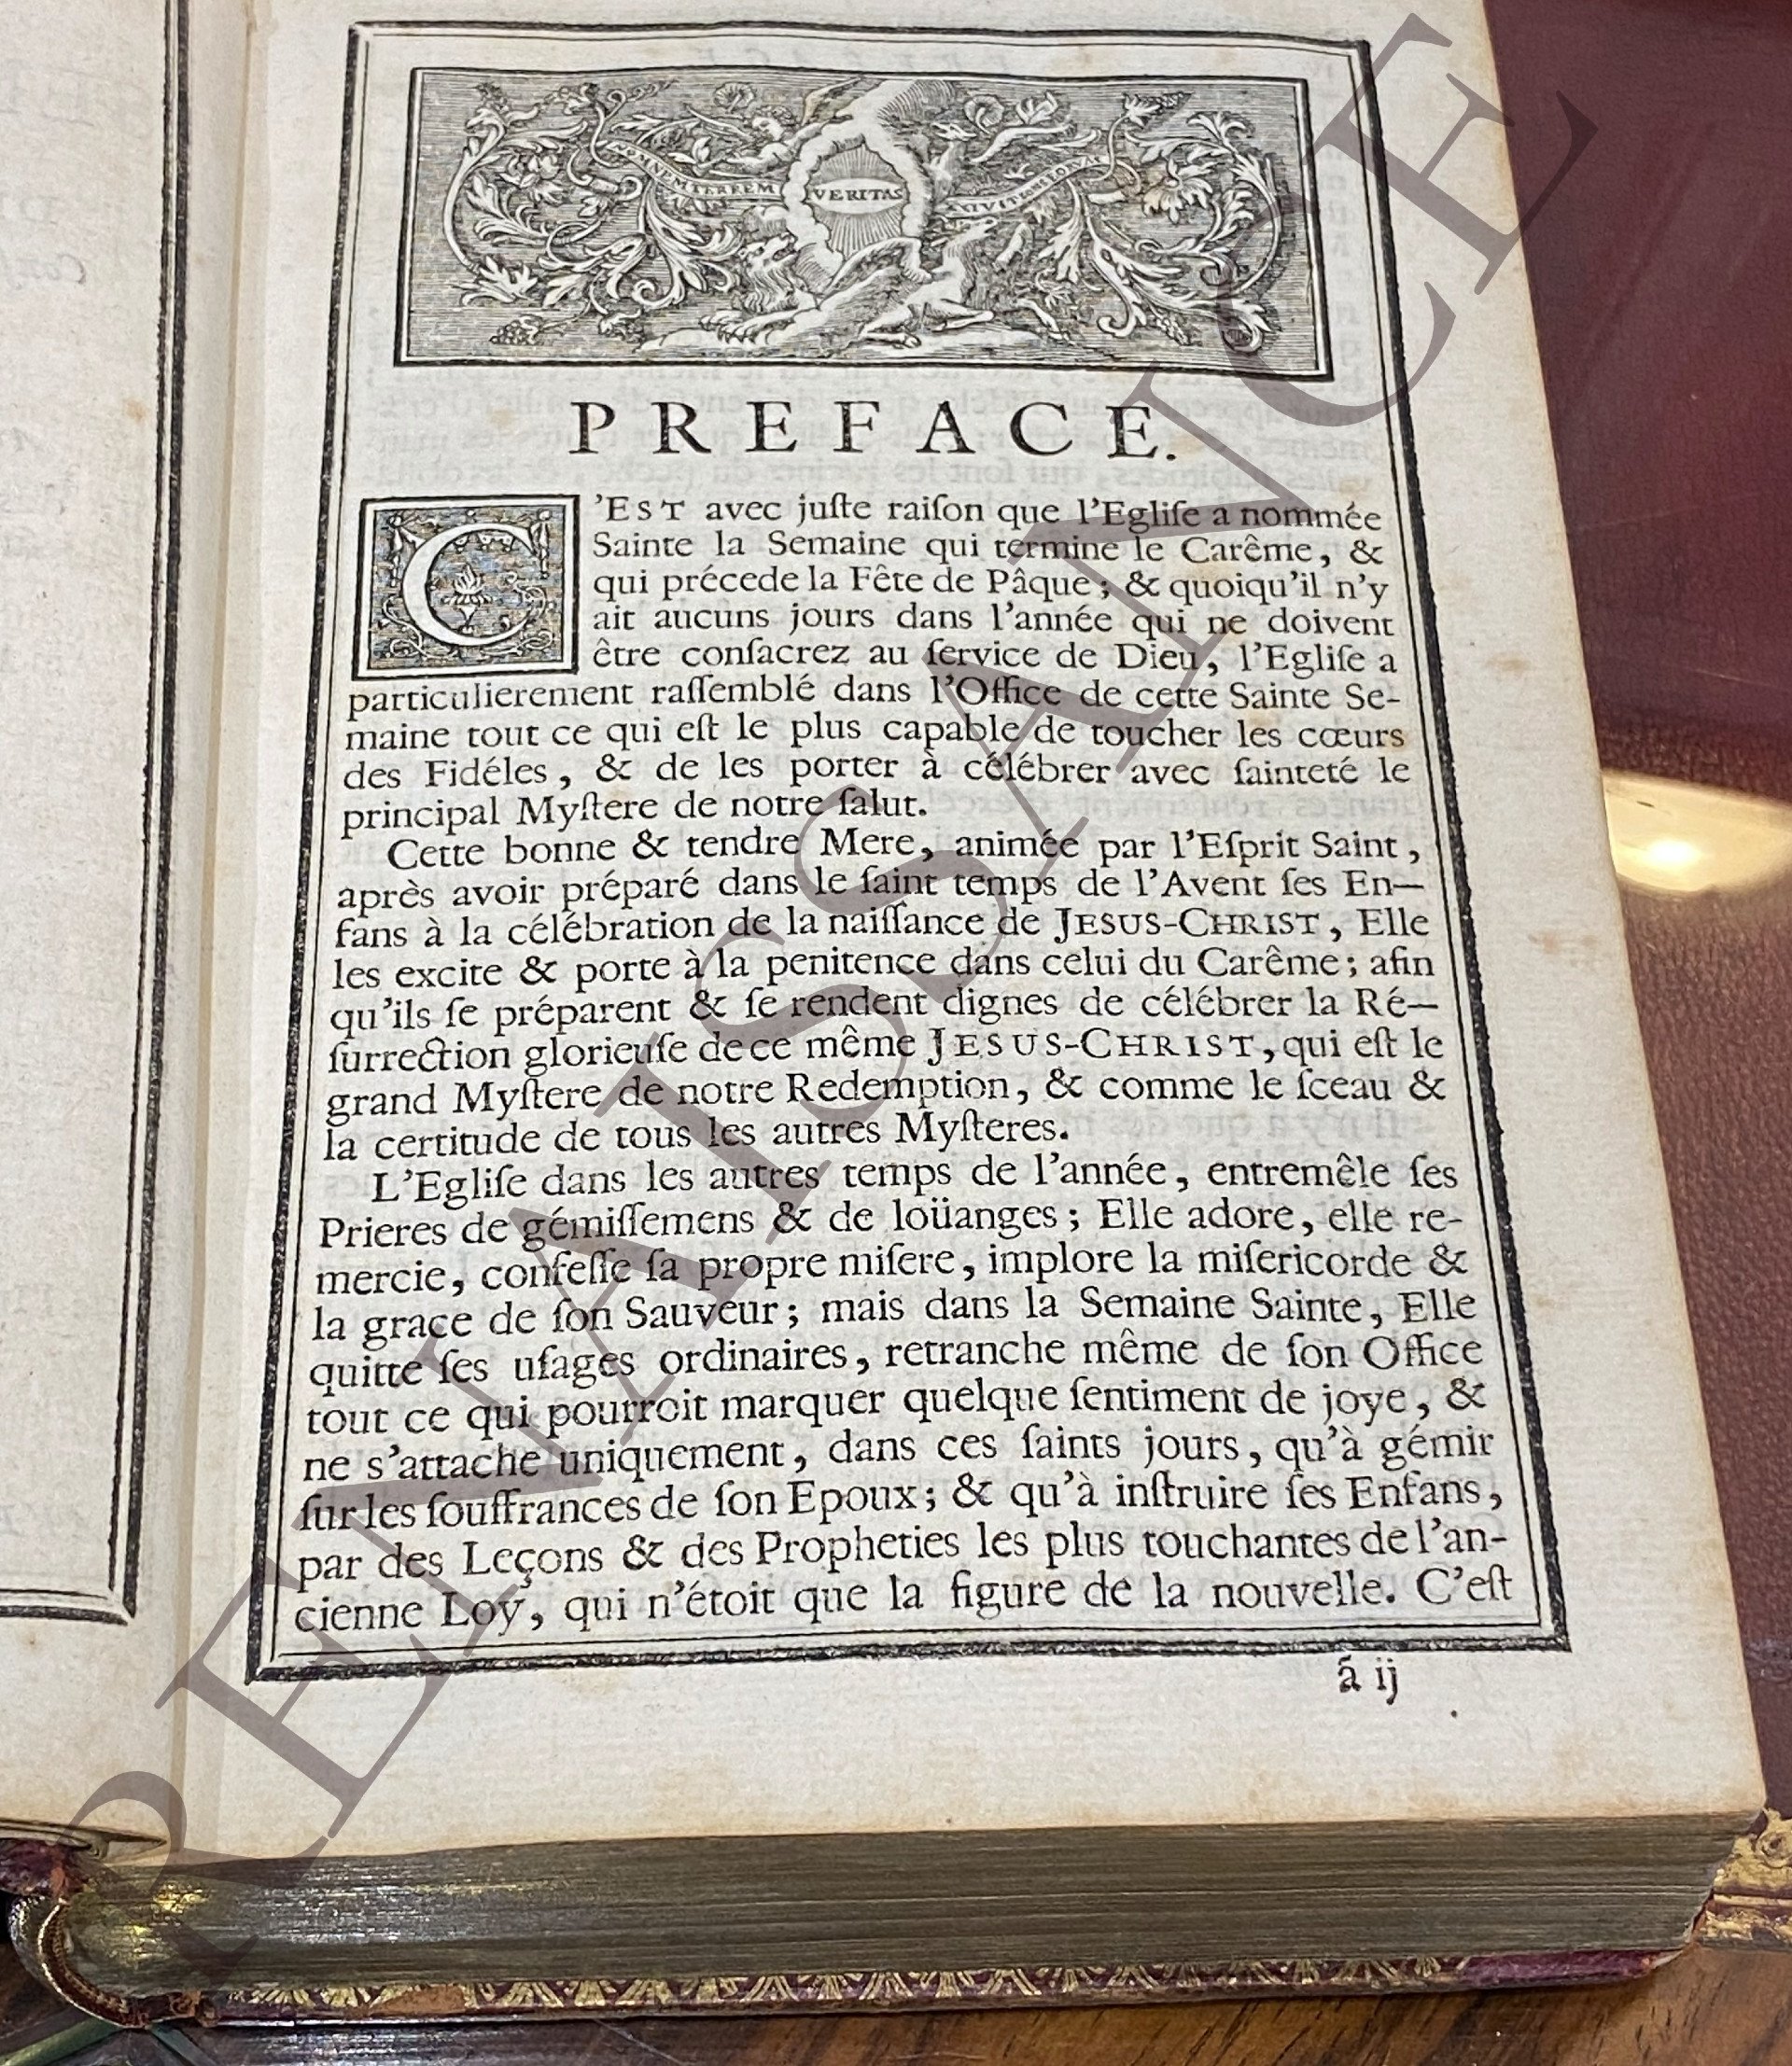 VERITAS
PREFACE.
C'EST avec juſte raiſon que l'Egliſe a nommée
Sainte la Semaine qui termine le Carême, &
qui précede la Fête de Pâque; & quoiqu'il n'y
ait aucuns jours dans l'année qui ne doivent
être conſacrez au ſervice de Dieu, l'Egliſe a
particulierement raſſemblé dans l'Office de cette Sainte Se-
maine tout ce qui eſt le plus capable de toucher les cœurs
des Fidéles, & de les porter à célébrer avec ſainteté le
principal Myſtere de notre ſalut.
Cette bonne & tendre Mere, animée par l'Eſprit Saint,
après avoir préparé dans le ſaint temps de l'Avent ſes En-
fans à la célébration de la naiſſance de JESUS-CHRIST, Elle
les excite & porte à la penitence dans celui du Carême; afin
qu'ils ſe préparent & ſe rendent dignes de célébrer la Ré-
ſurrection glorieuſe de ce même JESUS-CHRIST, qui eſt le
grand Myſtere de notre Redemption, & comme le ſceau &
la certitude de tous les autres Myſteres.
L'Egliſe dans les autres temps de l'année, entremêle ſes
Prieres de gémiſſemens & de loüanges; Elle adore, elle re-
mercie, confeſſe ſa propre miſere, implore la miſericorde &
la grace de ſon Sauveur; mais dans la Semaine Sainte, Elle
quitte ſes uſages ordinaires, retranche même de ſon Office
tout ce qui pourroit marquer quelque ſentiment de joye, &
ne s'attache uniquement, dans ces ſaints jours, qu'à gémir
ſur les ſouffrances de ſon Epoux; & qu'à inſtruire ſes Enfans,
par des Leçons & des Propheties les plus touchantes de l'an-
cienne Loy, qui n'étoit que la figure de la nouvelle. C'eſt
ã ij
RENAISSANCE